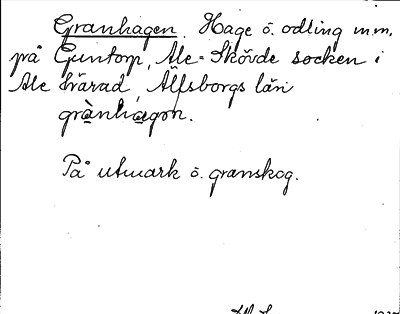 Granhagen. Hage o. odling m.m.
på Guntorp, Ale-Skövde socken i
Ale härad Älfsborgs län
grànhàgon.
På utmark o. granskog.